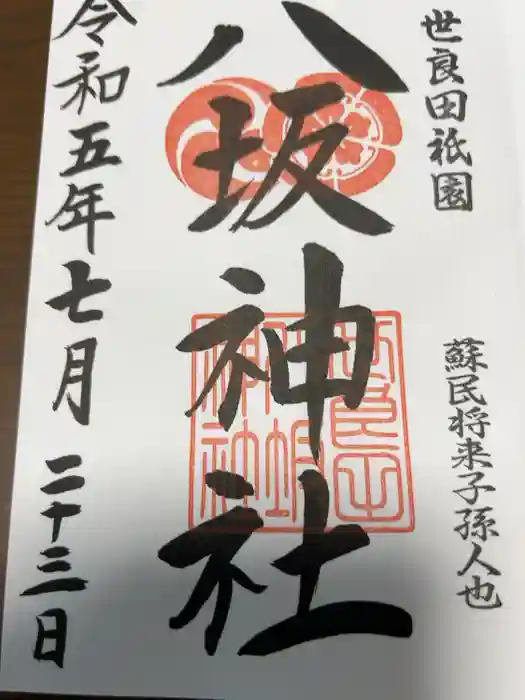 世良田祇園
蘇民将来子孫人也
八坂神社
令和五年七月二十三日